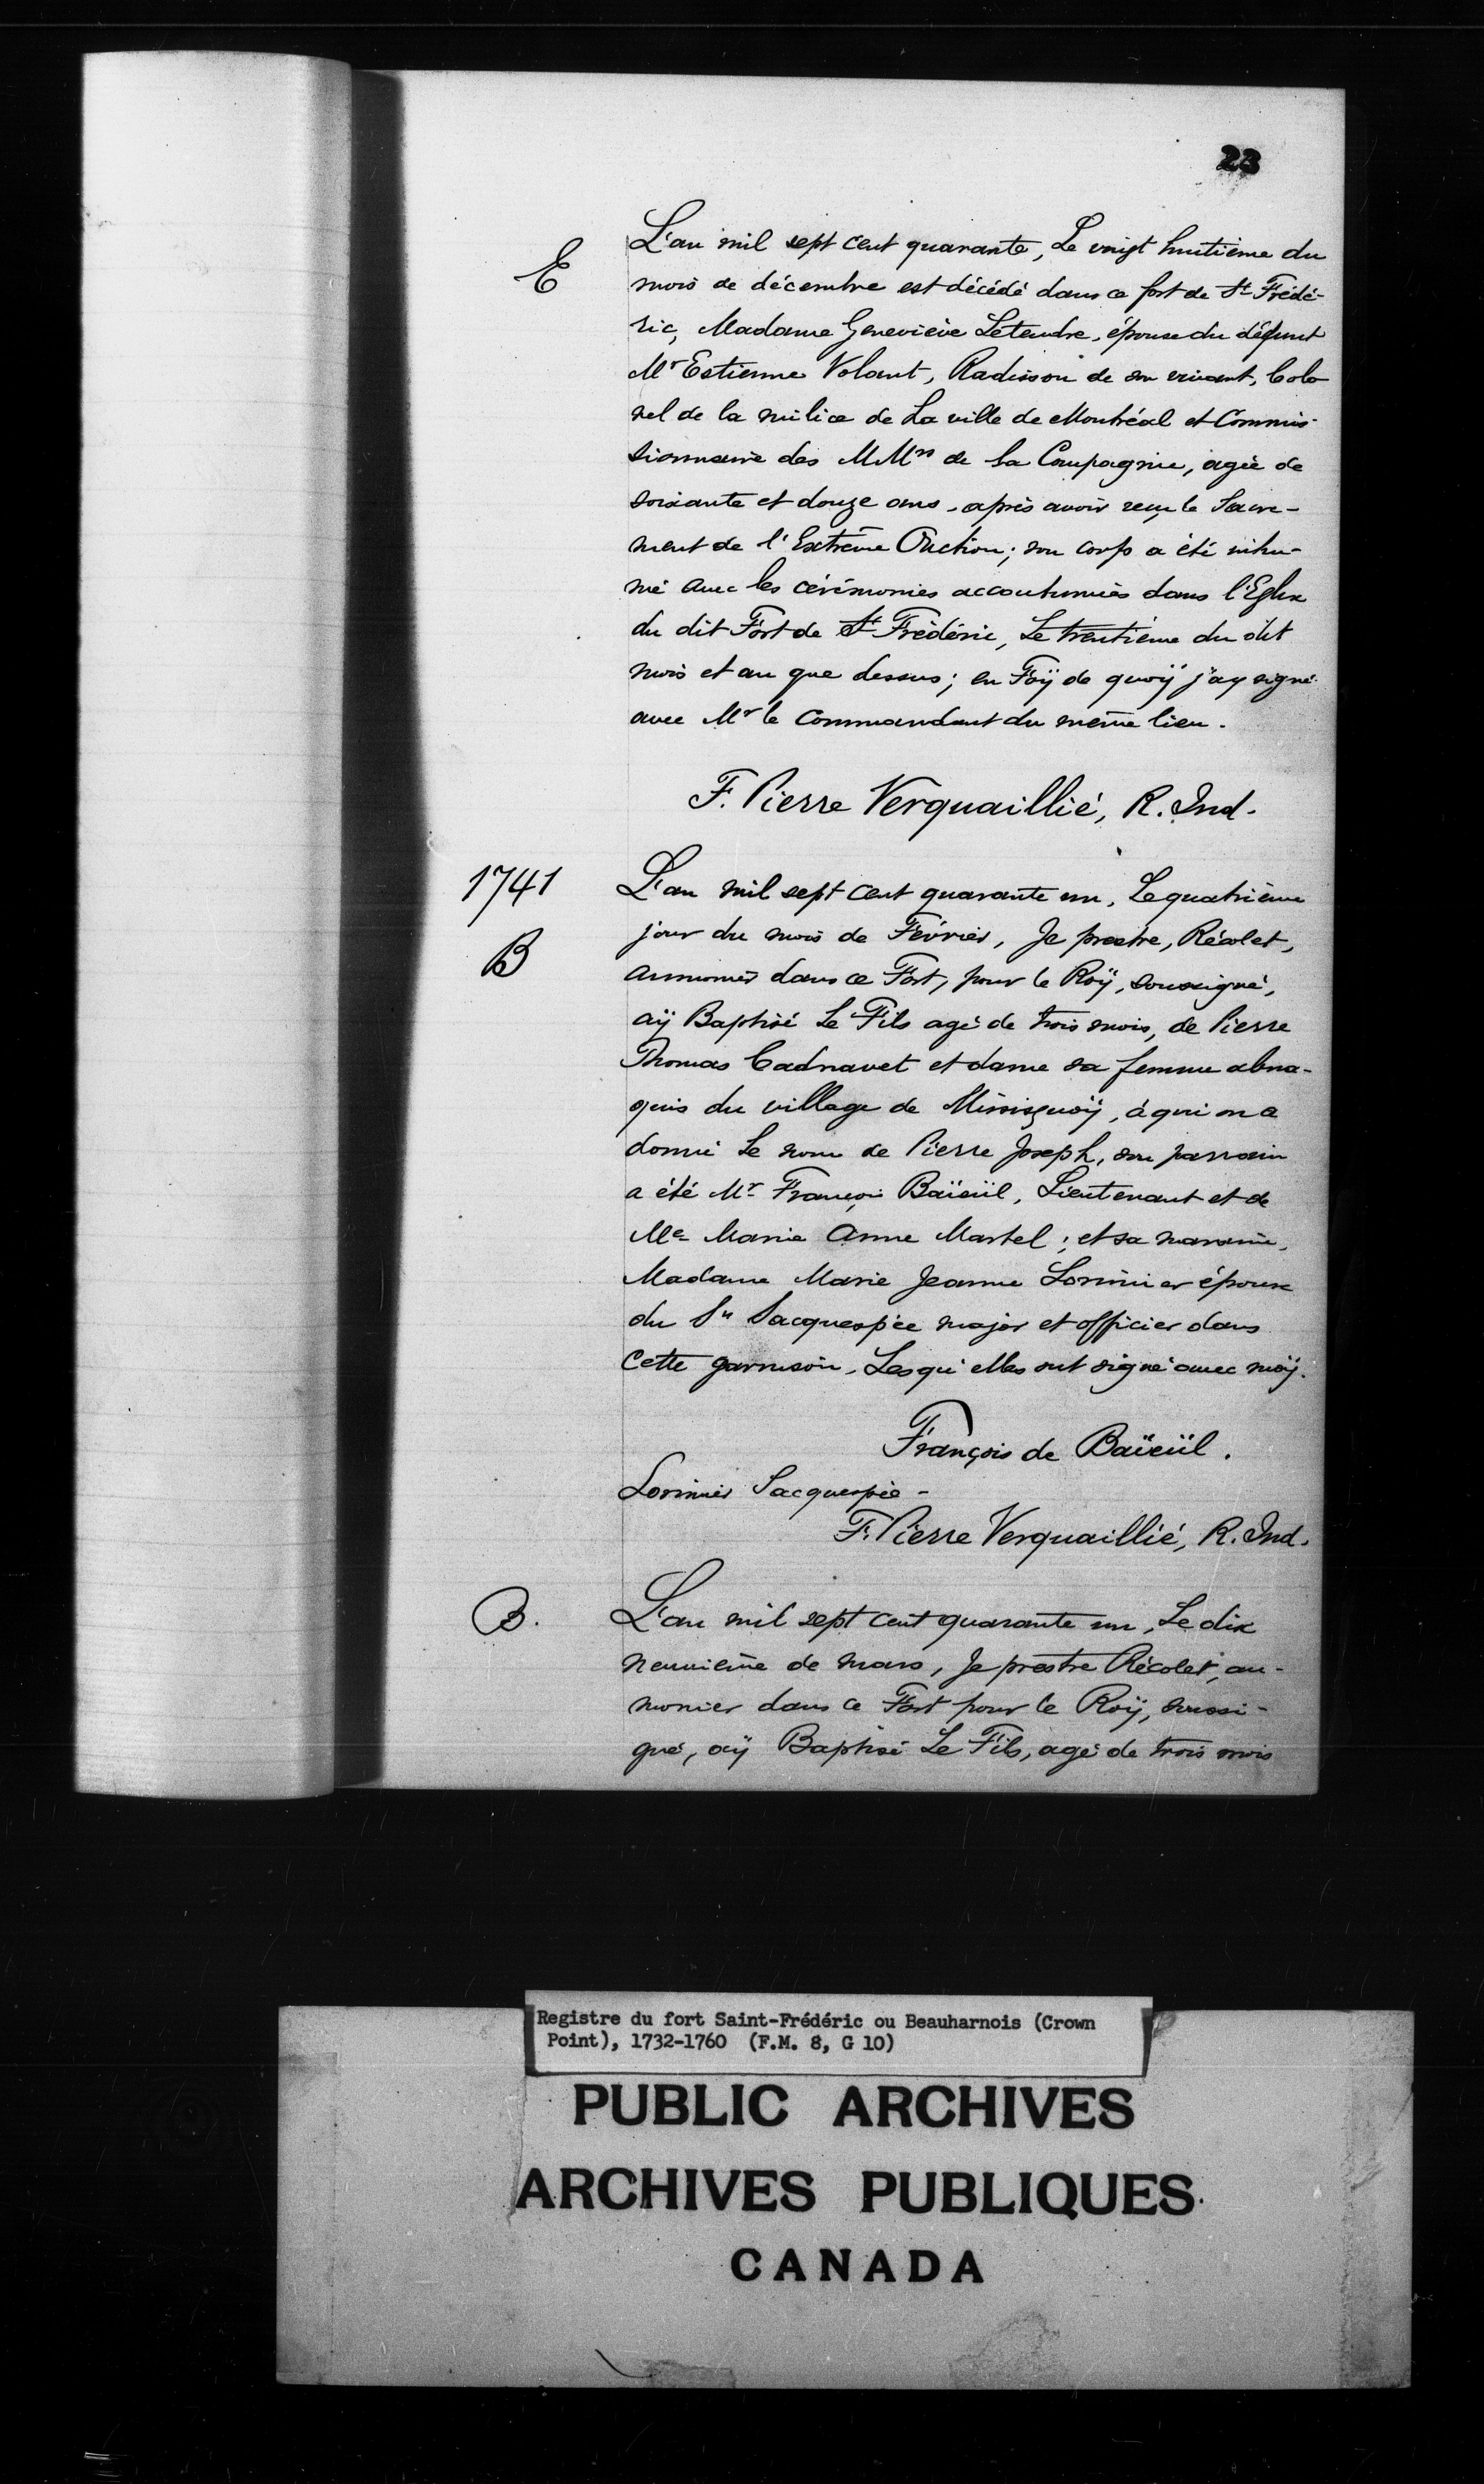 23
E
L'an mil sept cent quarante, Le vingt huitième du
mois de décembre est décédé dans ce fort de St Frédé-
ric, Madame Geneviève Letendre, épouse du défunt
Mr Estienne Volant, Radisson de son vivant, Colo
nel de la milice de La ville de Montréal et Commis-
sionnaire des MMrs de la Compagnie, agée de
soixante et douze ans, après avoir reçu le Sacre-
ment de l'Extrême Onction; son corps a été inhu-
mé avec les cérémonies accoutumées dans l'Eglise
du dit Fort de St Frédéric, Le trentième du dit
mois et an que dessus; en Foÿ de quoÿ j'ay signé
avec Mr le Commandant du même lieu.
F. Pierre Verquaillié, R. Ind.
1741
B
L'an mil sept cent quarante un, Le quatrième
jour du mois de Février, Je prestre, Récolet,
aumonier dans ce Fort, pour le Roÿ, soussigné,
aÿ Baptisé Le Fils agé de trois mois, de Pierre
Thomas Cadnavet et dame sa femme abna-
quis du village de Missisquoÿ, à qui on a
donné Le nom de Pierre Joseph, son parrain
a été Mr François Baïeül, Lieutenant et de
Me Marie Anne Martel; et sa marraine,
Madame Marie Jeanne Lorimier épouse
du Sr Sacquespée major et officier dans
cette garnison, Lesqu'elles ont signé avec moÿ.
François de Baïeül.
Lorimier Sacquespée -
F. Pierre Verquaillié, R. Ind.
B.
L'an mil sept cent quarante un, Le dix
neuvième de mars, Je prestre Récolet, au-
monier dans ce Fort pour le Roÿ, soussi-
gné, aÿ Baptisé Le Fils, agé de trois mois
Registre du fort Saint-Frédéric ou Beauharnois (Crown
Point), 1732-1760 (F.M. 8, G 10)
PUBLIC ARCHIVES
ARCHIVES PUBLIQUES
CANADA